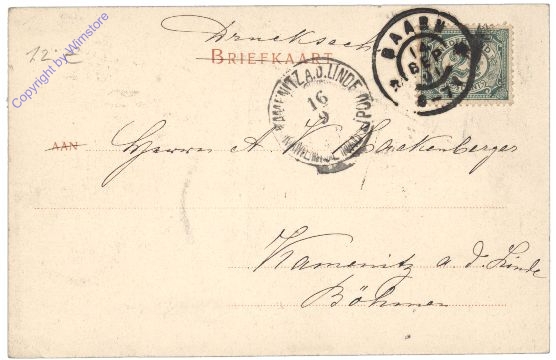 Drucksache
12.-
BRIEFKAART
BAARN
KAMENITZ A.D. LINDE
16
9
AAN
Herrn A K Lackenberger
Kamenitz a. d. Linde
Böhmen
Copyright by Wimstore